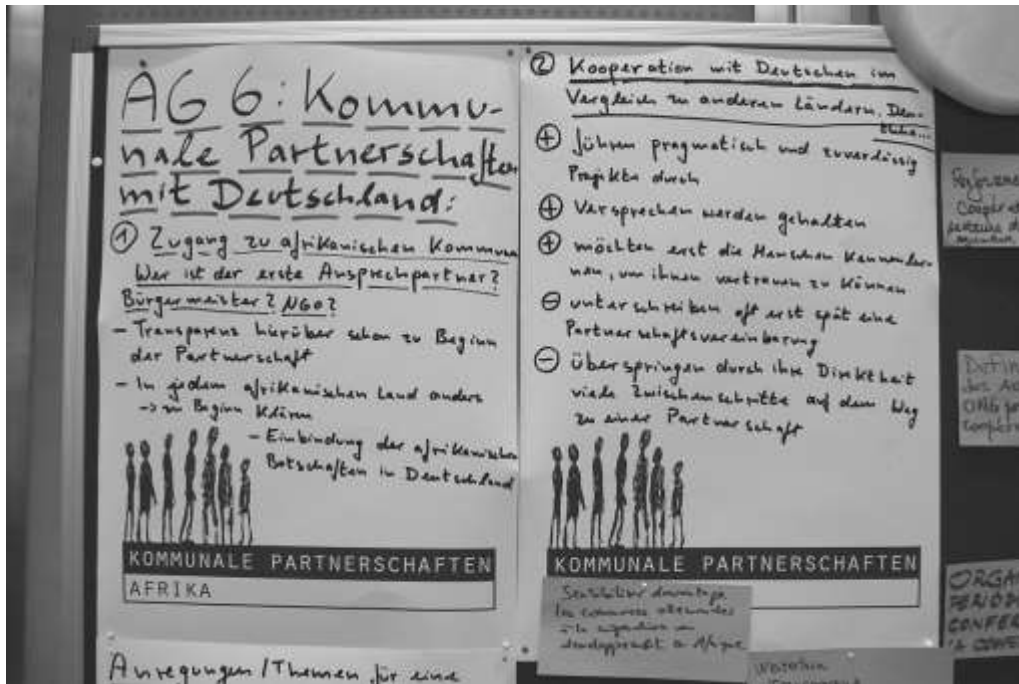 AG 6: Kommu-
nale Partnerschaften
mit Deutschland:
① Zugang zu afrikanischen Kommunen
Wer ist der erste Ansprechpartner?
Bürgermeister? NGO?
– Transparenz hierüber schon zu Beginn
der Partnerschaft
– In jedem afrikanischen Land anders
–> zu Beginn klären
– Einbindung der afrikanischen
Botschaften in Deutschland
KOMMUNALE PARTNERSCHAFTEN
AFRIKA
② Kooperation mit Deutschen im
Vergleich zu anderen Ländern. Deu-
tsche...
⊕ führen pragmatisch und zuverlässig
Projekte durch
⊕ Versprechen werden gehalten
⊕ möchten erst die Menschen kennenler-
nen, um ihnen vertrauen zu können
⊖ unterschreiben oft erst spät eine
Partnerschaftsvereinbarung
⊖ überspringen durch ihre Direktheit
viele Zwischenschritte auf dem Weg
zu einer Partnerschaft
KOMMUNALE PARTNERSCHAFTEN
Sensibiliser davantage
les communes allemandes
à la
développement en Afrique
Anregungen/Themen für eine
ORGA
PERIOD
CONFER